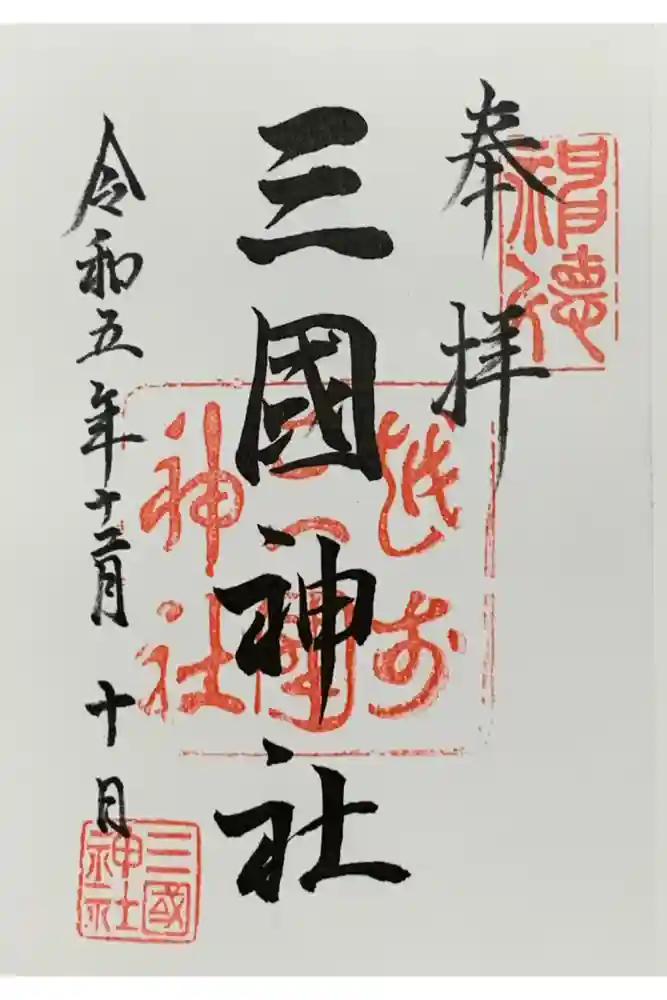 奉拝
越前
三國神社
三國
神社
令和五年十二月十日
三國
神社